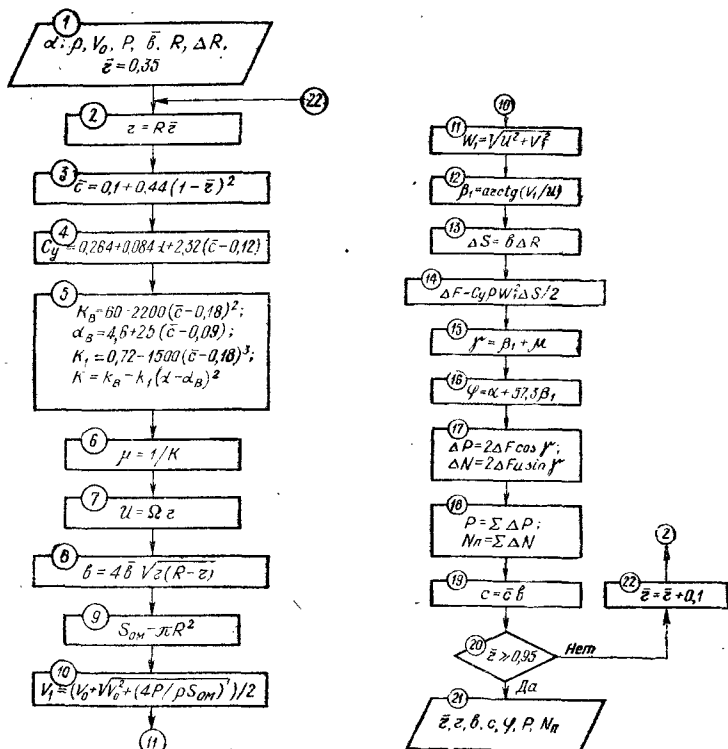 1
α; ρ, V₀, P, b̄, R, ΔR,
z̄=0,35
22
2
z = Rz̄
3
c̄=0,1+0,44(1-z̄)²
4
Cy=0,264+0,084α+2,32(c̄-0,12)
5
Kв=60-2200(c̄-0,18)²;
αв=4,6+25(c̄-0,09);
K₁=0,72-1500(c̄-0,18)³;
K = kв-k₁(α-αв)²
6
μ=1/K
7
U=Ωz
8
b=4b̄√z(R-z)
9
Sом=πR²
10
V₁=(V₀+√V₀²+(4P/ρSом))/2
11
10
11
W₁=√U²+V₁²
12
β₁=arctg(V₁/U)
13
ΔS=bΔR
14
ΔF=CyρW₁²ΔS/2
15
γ=β₁+μ
16
φ=α+57,3β₁
17
ΔP=2ΔFcosγ;
ΔN=2ΔFusinγ
18
P=ΣΔP;
Nп=ΣΔN
19
c=c̄b
20
z̄⩾0,95
Нет
Да
2
22
z̄=z̄+0,1
21
z̄,z,b,c,φ,P,Nп